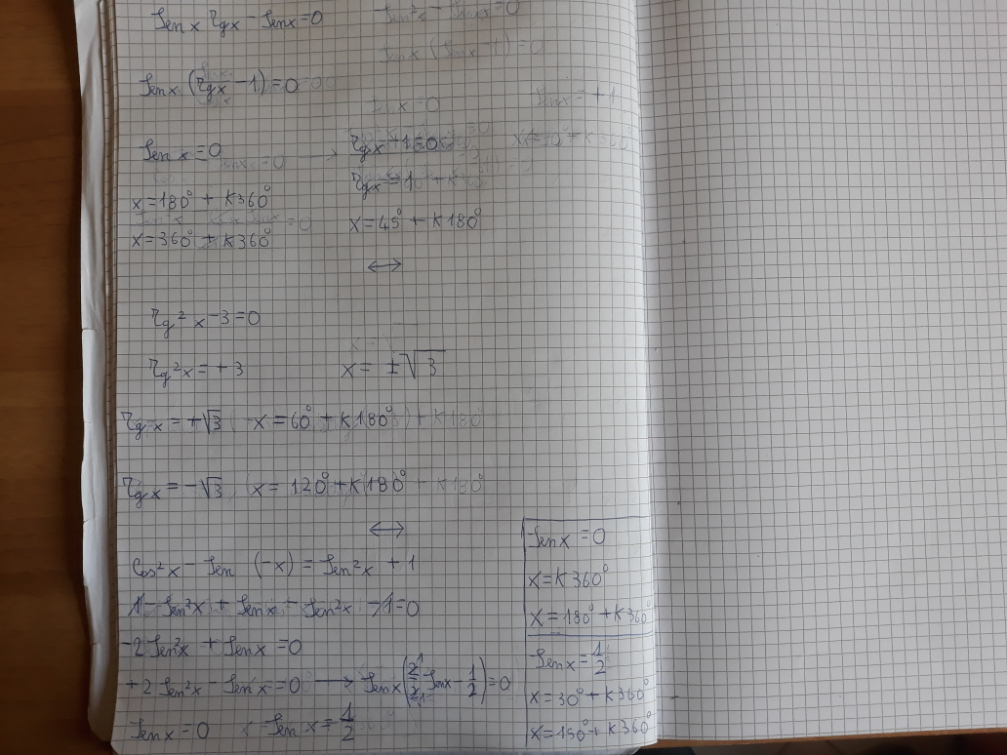 Sen x Tg x - Sen x = 0
Sen x (Tg x - 1) = 0
Sen x = 0 → Tg x + 1 = 0
Tg x = 1
x = 180° + K 360°
x = 45° + K 180°
x = 360° + K 360°
↔
Tg² x - 3 = 0
Tg² x = + 3 x = ±√3
Tg x = +√3 x = 60° + K 180°
Tg x = -√3 x = 120° + K 180°
↔
Cos² x - Sen (-x) = Sen² x + 1
1 - Sen² x + Sen x - Sen² x - 1 = 0
-2 Sen² x + Sen x = 0
+2 Sen² x - Sen x = 0 → Sen x (2/2 Sen x - 1/2) = 0
Sen x = 0 Sen x = 1/2
Sen x = 0
x = K 360°
x = 180° + K 360°
Sen x = 1/2
x = 30° + K 360°
x = 150° + K 360°